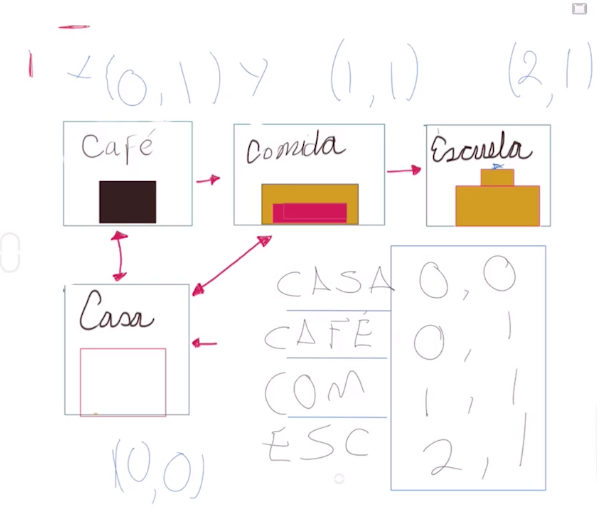 x(0,1)y (1,1) (2,1)
Café Comida Escuela
Casa
CASA 0,0
CAFÉ 0,1
COM 1,1
ESC 2,1
(0,0)